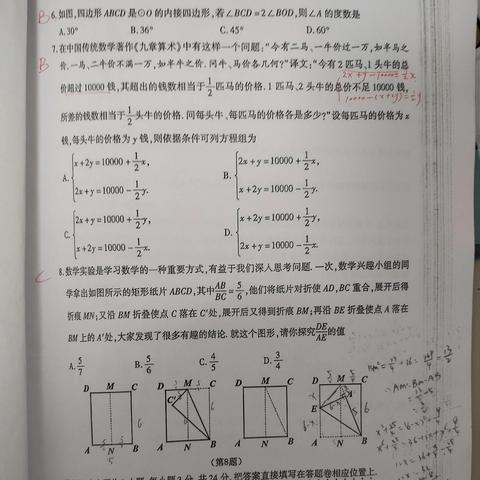 B 6.如图,四边形ABCD是⊙O的内接四边形,若∠BCD=2∠BOD,则∠A的度数是
A.30° B.36° C.45° D.60°
B 7.在中国传统数学著作《九章算术》中有这样一个问题:“今有二马、一牛价过一万,如半马之
价.一马、二牛价不满一万,如半牛之价.问牛、马价各几何?”译文:“今有2匹马、1头牛的总
2x+y-10000=½x
价超过10000钱,其超出的钱数相当于1/2匹马的价格.1匹马、2头牛的总价不足10000钱,
10000-(x+2y)=½y
所差的钱数相当于1/2头牛的价格.问每头牛、每匹马的价格各是多少?”设每匹马的价格为x
钱,每头牛的价格为y钱,则依据条件可列方程组为
A.{x+2y=10000+1/2x, 2x+y=10000-1/2y.
B.{2x+y=10000+1/2x, x+2y=10000-1/2y.
C.{2x+y=10000+1/2y, x+2y=10000-1/2x.
D.{x+2y=10000+1/2y, 2x+y=10000-1/2x.
C 8.数学实验是学习数学的一种重要方式,有益于我们深入思考问题.一次,数学兴趣小组的同
学拿出如图所示的矩形纸片ABCD,其中AB/BC=5/6,他们将纸片对折使AD,BC重合,展开后得
折痕MN;又沿BM折叠使点C落在C'处,展开后又得到折痕BM;再沿BE折叠使点A落在
BM上的A'处,大家发现了很多有趣的结论.就这个图形,请你探究DE/AE的值
A.5/7 B.5/6 C.4/5 D.3/4
D M C D M C D M C D M C
C' A'
E
A N B A N B A N B A N B
(第8题)
每小题3分,共24分.把答案直接填写在答题卷相应位置上.